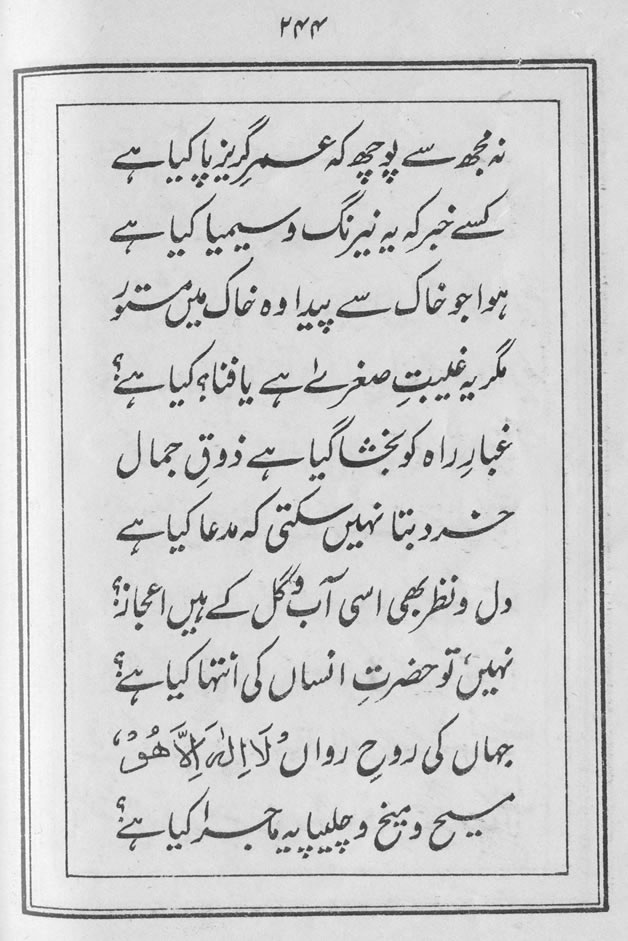 ۲۴۴
نہ مجھ سے پوچھ کہ عمرِ گریز پا کیا ہے
کسے خبر کہ یہ نیرنگ و سیمیا کیا ہے
ہوا جو خاک سے پیدا وہ خاک میں مستور
مگر یہ غیبتِ صغریٰ ہے یا فنا؟ کیا ہے؟
غبارِ راہ کو بخشا گیا ہے ذوقِ جمال
خرد بتا نہیں سکتی کہ مدعا کیا ہے
دل و نظر بھی اسی آب و گِل کے ہیں اعجاز؟
نہیں، تو حضرتِ انساں کی انتہا کیا ہے؟
جہاں کی روحِ رواں ’لَا اِلٰہَ اِلَّا ھُوْ‘
مسیح و میخ و چلیپا یہ ماجرا کیا ہے؟